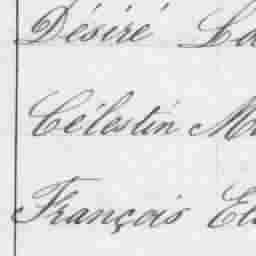 Désiré La
Célestin M
François El